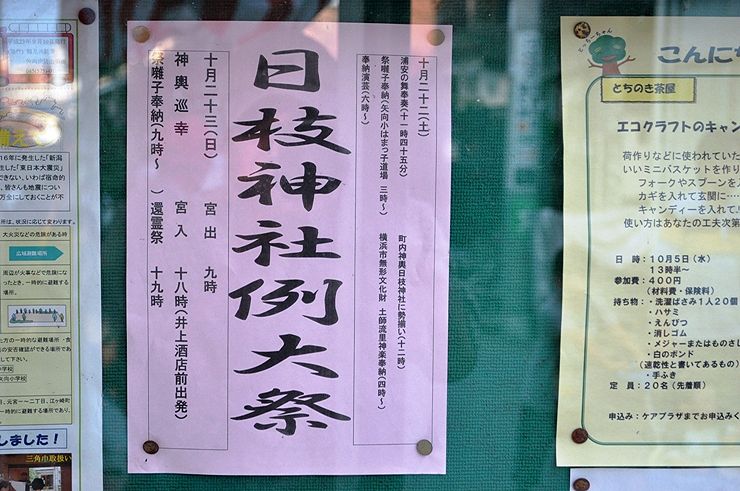 十月二十二(土)
浦安の舞奉奏(十一時四十五分)
町内神輿日枝神社に勢揃い(十二時)
祭囃子奉納(矢向小はまっ子道場 三時〜)
横浜市無形文化財 土師流里神楽奉納(四時〜)
奉納演芸(六時〜)
日枝神社例大祭
十月二十三(日)
宮出 九時
神輿巡幸
宮入 十八時(井上酒店前出発)
祭囃子奉納(九時〜)
還霊祭 十九時
とっちーちゃん
こんにち
とちのき茶屋
エコクラフトのキャン
荷作りなどに使われていた
いいミニバスケットを作り
フォークやスプーンを入
カギを入れて玄関に……
キャンディーを入れて
使い方はあなたの工夫次第
日 時:10月5日(水)
13時半〜
参加費:400円
(材料費・保険料)
持ち物:・洗濯ばさみ1人20個
・ハサミ
・えんぴつ
・消しゴム
・メジャーまたはものさし
・白のボンド
(速乾性と書いてあるもの)
・手ふき
定 員:20名(先着順)
申込み:ケアプラザまでお申込みく
備えて
16年に発生した「新潟
した「東日本大震災」
できない、いわば宿命的
、皆さんも地震につい
万全にしておくことが不
所は、状況に応じて変わります。
大火災などの危険がある時
広域避難場所
周辺が火事などで危険にな
ったとき、一時的に避難する
場所。
小学校
矢向小学校
しました!
三角巾取扱い